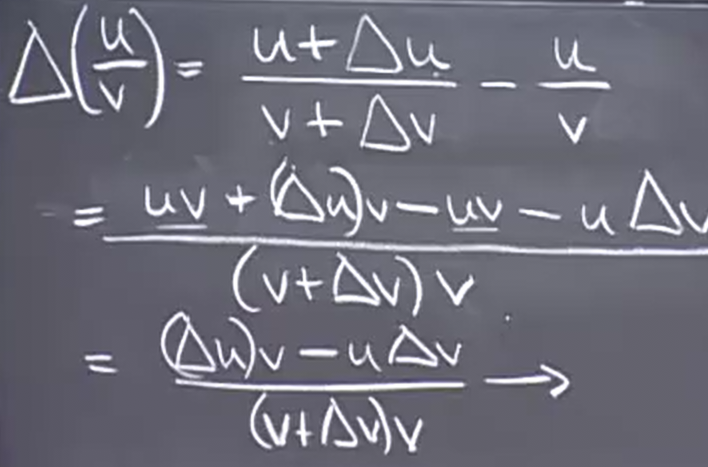 Δ(u/v) = (u + Δu)/(v + Δv) − u/v
= (uv + (Δu)v − uv − u Δv)/((v + Δv) v)
= ((Δu)v − u Δv)/((v + Δv)v) →